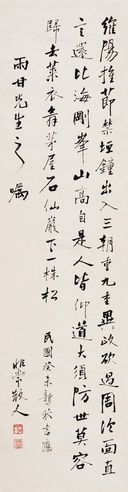 維陽推節禁垣鐘出入三朝重九重異政欲過周渤面直
言還比海剛峯山高自是人皆仰道大須防世莫容
歸去萊衣舞茅屋石仙巖下一株松
雨甘先生之囑
民國癸未新秋書應
散人